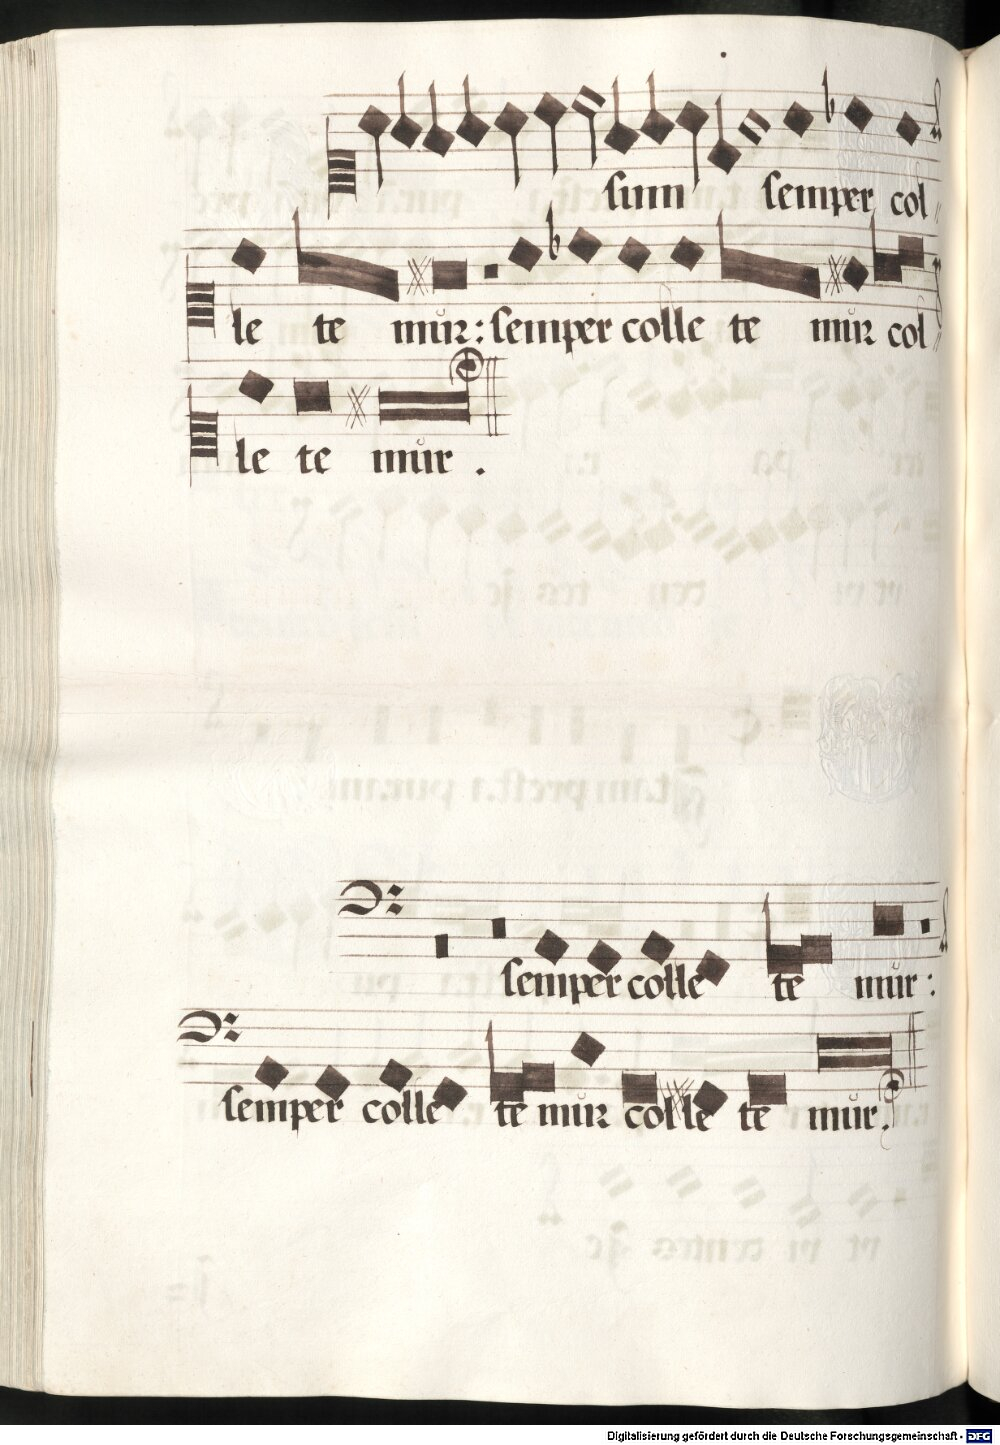 sum semper col=
le te mur: semper colle te mur col=
le te mur.
semper colle te mur:
semper colle te mur colle te mur.
Digitalisierung gefördert durch die Deutsche Forschungsgemeinschaft - DFG